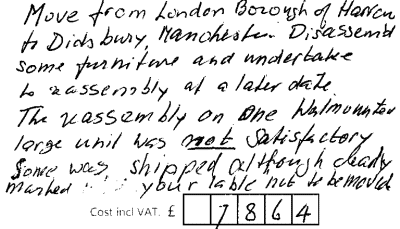 Move from London Borough of Harrow
to Didsbury, Manchester. Disassembl
some furniture and undertake
to reassembly at a later date.
The reassembly on One Wallmounted
large unit was not Satisfactory
Some was shipped although clearly
marked your lable not to be moved
Cost incl VAT. £ 7864